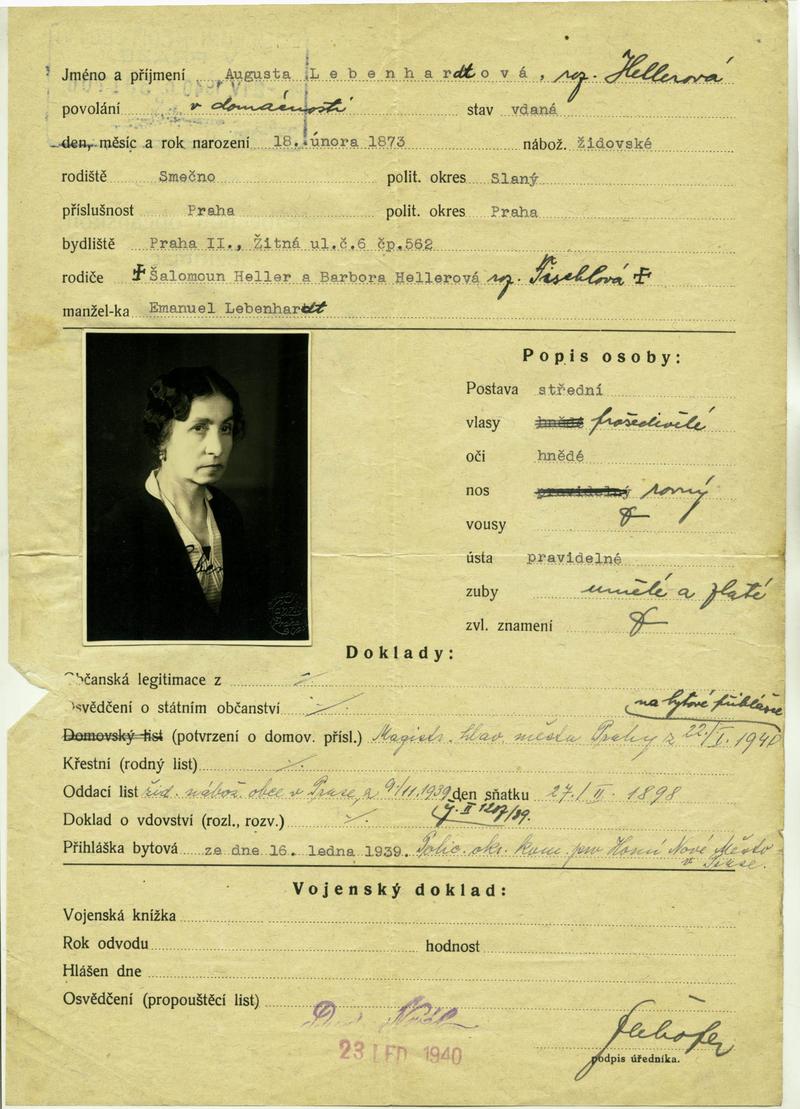 Jméno a příjmení Augusta Lebenhardtová, roz. Hellerová
povolání v domácnosti stav vdaná
den, měsíc a rok narození 18. února 1873 nábož. židovské
rodiště Smečno polit. okres Slaný
příslušnost Praha polit. okres Praha
bydliště Praha II., Žitná ul.č.6 čp.562
rodiče ✝ Šalomoun Heller a Barbora Hellerová roz. Fischlová ✝
manžel-ka Emanuel Lebenhardt
Popis osoby:
Postava střední
vlasy hnědé prošedivělé
oči hnědé
nos pravidelný rovný
vousy
ústa pravidelné
zuby umělé a zlaté
zvl. znamení
Doklady:
Občanská legitimace z
Osvědčení o státním občanství
na bytové přihlášce
Domovský list (potvrzení o domov. přísl.) Magistr. hlav. města Prahy z 22./I. 1940
Křestní (rodný list)
Oddací list žid. nábož. obce v Praze, z 9/11.1939 den sňatku 27./II. 1898
Doklad o vdovství (rozl., rozv.) /39.
Přihláška bytová ze dne 16. ledna 1939. Polic. okr. kom. pro Horní Nové Město
v Praze.
Vojenský doklad:
Vojenská knížka
Rok odvodu hodnost
Hlášen dne
Osvědčení (propouštěcí list)
23 LED 1940
podpis úředníka.